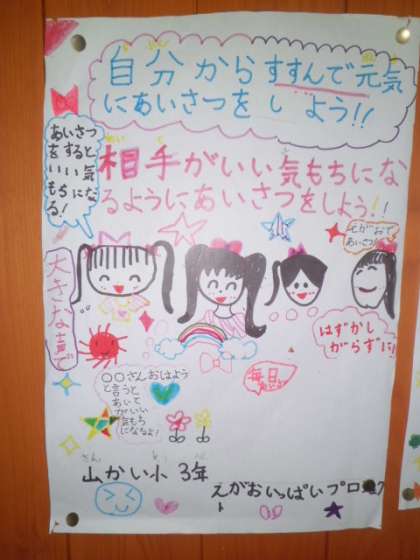 自分からすすんで元気
にあいさつをしよう!!
あいさつ
をすると
いい気
もちにな
る!
相手がいい気もちにな
るようにあいさつをしよう!!
えがおで
あいさつ!
大きな声で
はずかし
がらずに!
毎日
〇〇さんおはよう
と言うと
あいて
がいい
気もち
になるよ!
山かい小 3年
えがおいっぱいプロ
ト